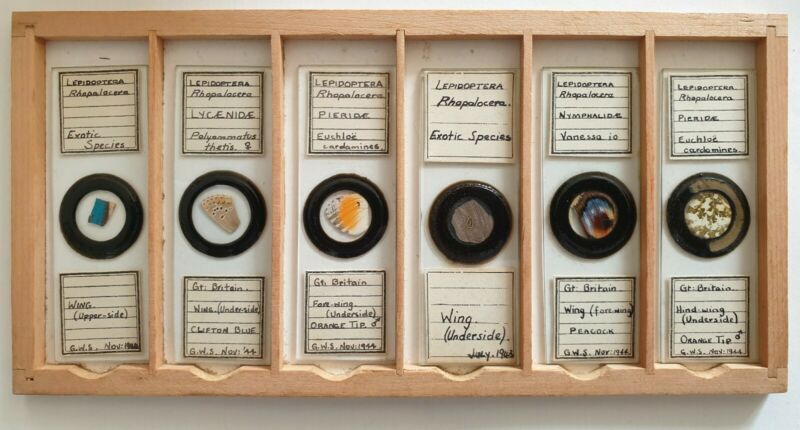 LEPIDOPTERA
Rhopalocera
Exotic
Species.
WING.
(Upper-side)
G.W.S. Nov: 1944
LEPIDOPTERA
Rhopalocera
LYCÆNIDÆ
Polyommatus
thetis. ♀
Gt: Britain.
Wing. (Under-side)
CLIFTON BLUE
G.W.S. Nov: '44
LEPIDOPTERA
Rhopalocera
PIERIDÆ
Euchloë
cardamines.
Gt: Britain
Fore-wing.
(Underside)
ORANGE TIP. ♂
G.W.S. Nov: 1944
LEPIDOPTERA
Rhopalocera.
Exotic Species
Wing.
(Underside).
July.
LEPIDOPTERA
Rhopalocera
NYMPHALIDÆ
Vanessa io
Gt: Britain.
Wing (fore-wing)
PEACOCK
G.W.S. Nov: 1944.
LEPIDOPTERA
Rhopalocera
PIERIDÆ
Euchloë
cardomines.
Gt: Britain.
Hind-wing
(Underside)
ORANGE TIP ♂
G.W.S. Nov: 1944